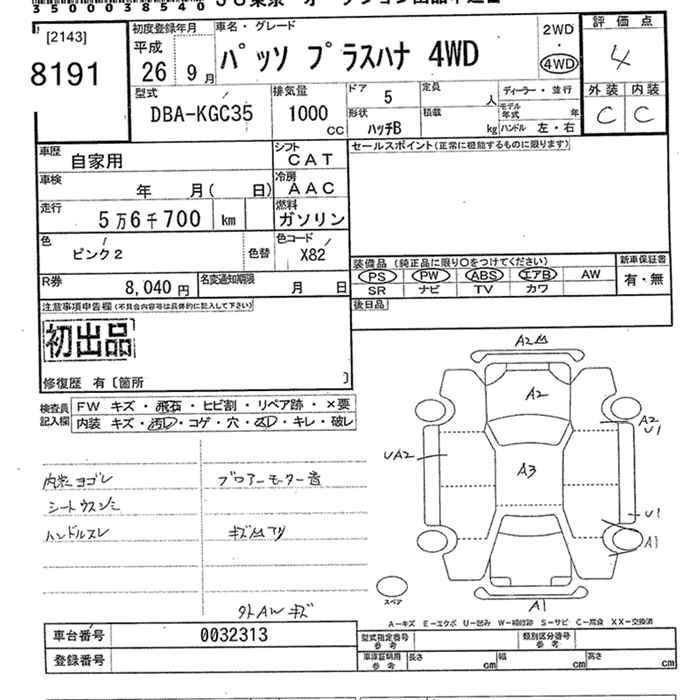 35000038540
[2143]
8191
初度登録年月
平成
26 9月
車名・グレード
パッソ プラスハナ 4WD
2WD
4WD
評価点
4
外装 内装
C C
型式
DBA-KGC35
排気量
1000
CC
ドア 5
形状
ハッチB
定員 人
積載 kg
ディーラー・並行
モデル年式 年
ハンドル 左・右
車歴 自家用
シフト CAT
車検 年 月( 日)
冷房 AAC
走行 5万6千700 km
燃料 ガソリン
色 ピンク2
色替
色コード X82
R券 8,040円
名変通知期限 月 日
セールスポイント(正常に機能するものに限ります)
装備品(純正品に限り○をつけてください)
PS PW ABS エアB AW
SR ナビ TV カワ
新車保証書
有・無
後日品
注意事項申告欄(不具合内容等は具体的に記入して下さい)
初出品
修復歴 有〔箇所 〕
検査員記入欄
FW キズ・飛石・ヒビ割・リペア跡・×要
内装 キズ・汚レ・コゲ・穴・スレ・キレ・破レ
内装ヨゴレ
シートウスジミ
ハンドルスレ
ブロアーモーター音
外AWキズ
A2
A2
A2
U1
UA2
A3
U1
A1
A1
スペア
A-キズ E-エクボ U-凹み W-補修跡 S-サビ C-腐食 XX-交換済
車台番号 0032313
登録番号
型式指定番号 参考
類別区分番号 参考
車庫証明用 参考
長さ cm
幅 cm
高さ cm